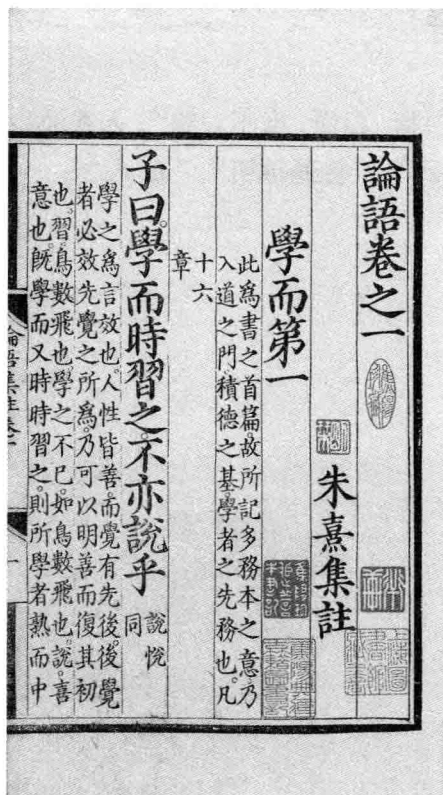 論語卷之一
朱熹集註
學而第一
此爲書之首篇。故所記多務本之意。乃
入道之門。積德之基。學者之先務也。凡
十六
章
子曰。學而時習之。不亦說乎
說悅
同
學之爲言效也。人性皆善。而覺有先後。後覺
者必效先覺之所爲。乃可以明善而復其初
也。習。鳥數飛也。學之不已。如鳥數飛也。說。喜
意也。旣學而又時時習之。則所學者熟而中
論語集註卷一